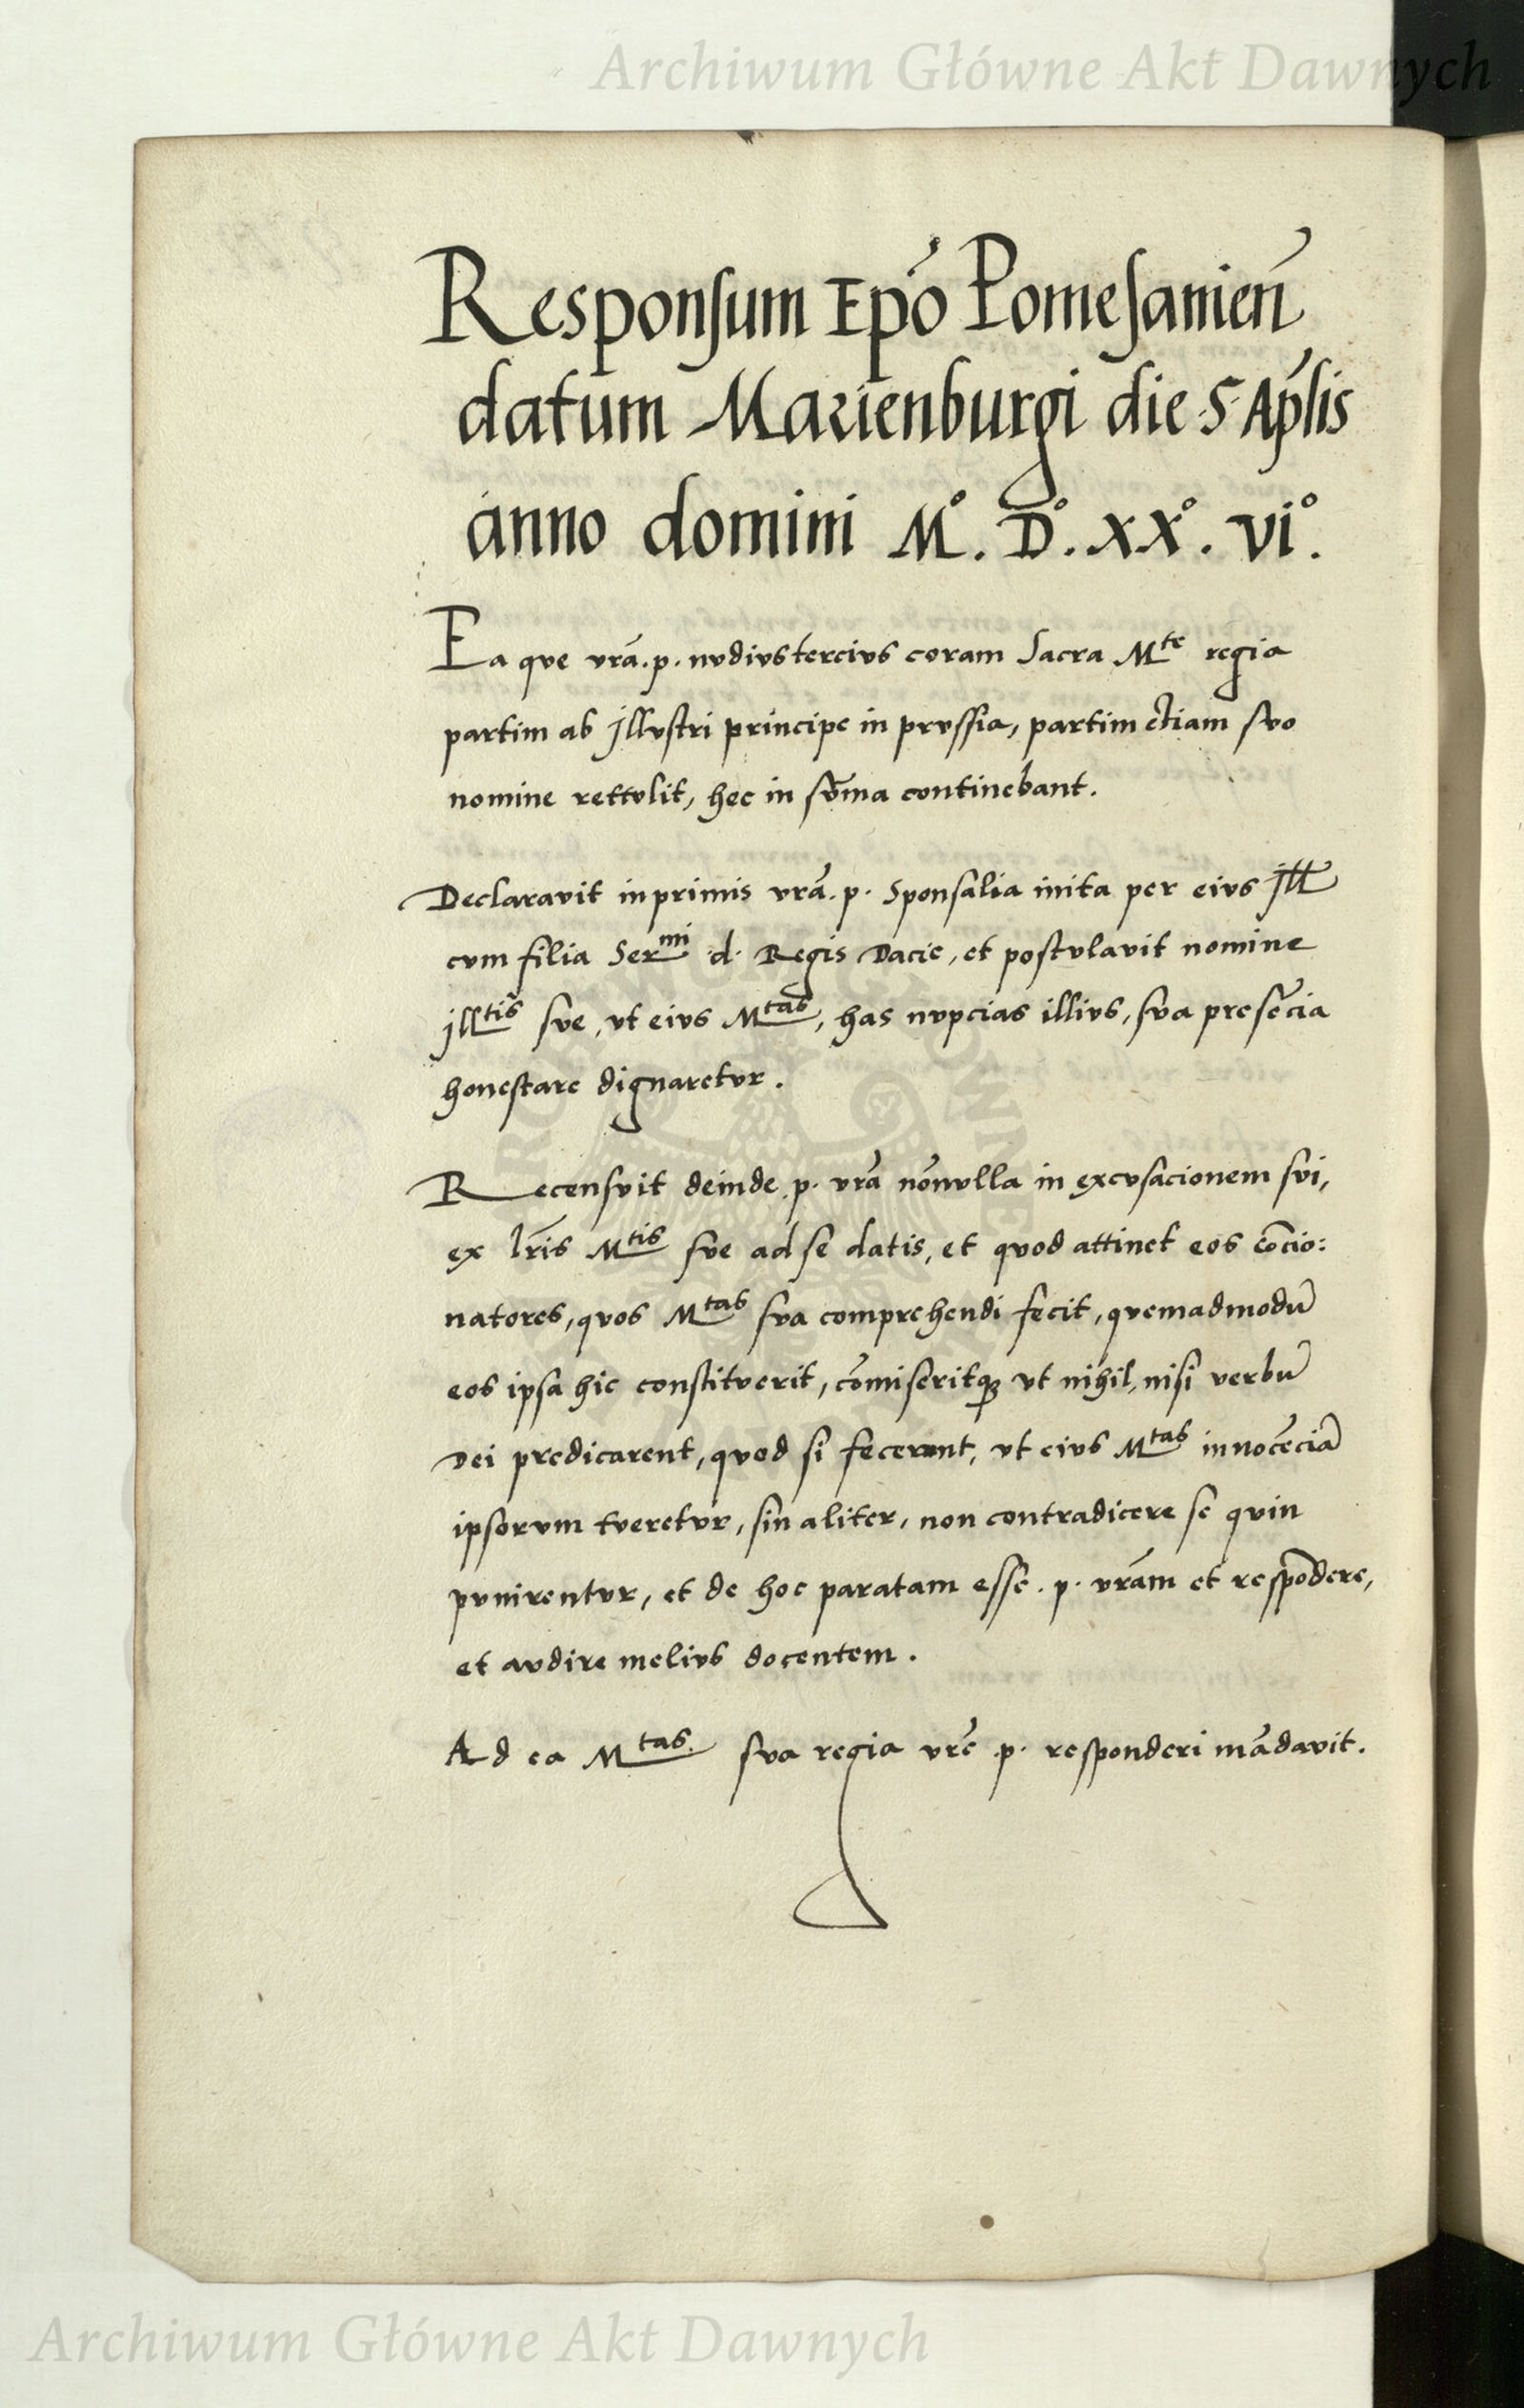 Archiwum Główne Akt Dawnych
Responsum Epõ Pomesanień
datum Marienburgi die .5. Ap̃lis
anno domini M°. D°. xx°. vi°.
Ea que vrã .p. nudiustercius coram Sacra Mte regia
partim ab Illustri principe in prussia, partim etiam suo
nomine rettulit, hec in sũma continebant.
Declaravit inprimis vrã .p. Sponsalia inita per eius Ill
cum filia Sermi .d. Regis Dacie, et postulavit nomine
Illtis sue, ut eius Mtas, has nupcias illius, sua presẽcia
honestare dignaretur.
Recensuit deinde .p. vrã nõnulla in excusacionem sui,
ex lr̃is Mtis sue ad se datis, et quod attinet eos cõcio:
natores, quos Mtas sua comprehendi fecit, quemadmodũ
eos ipsa hic constituerit, cõmiseritqȝ ut nihil, nisi verbũ
Dei predicarent, quod si fecerunt, ut eius Mtas innocẽciã
ipsorum tueretur, sin aliter, non contradicere se quin
punirentur, et de hoc paratam esse .p. vrãm et respõdere,
et audire melius docentem.
Ad ea Mtas. sua regia vrẽ .p. responderi mãdavit.
Archiwum Główne Akt Dawnych